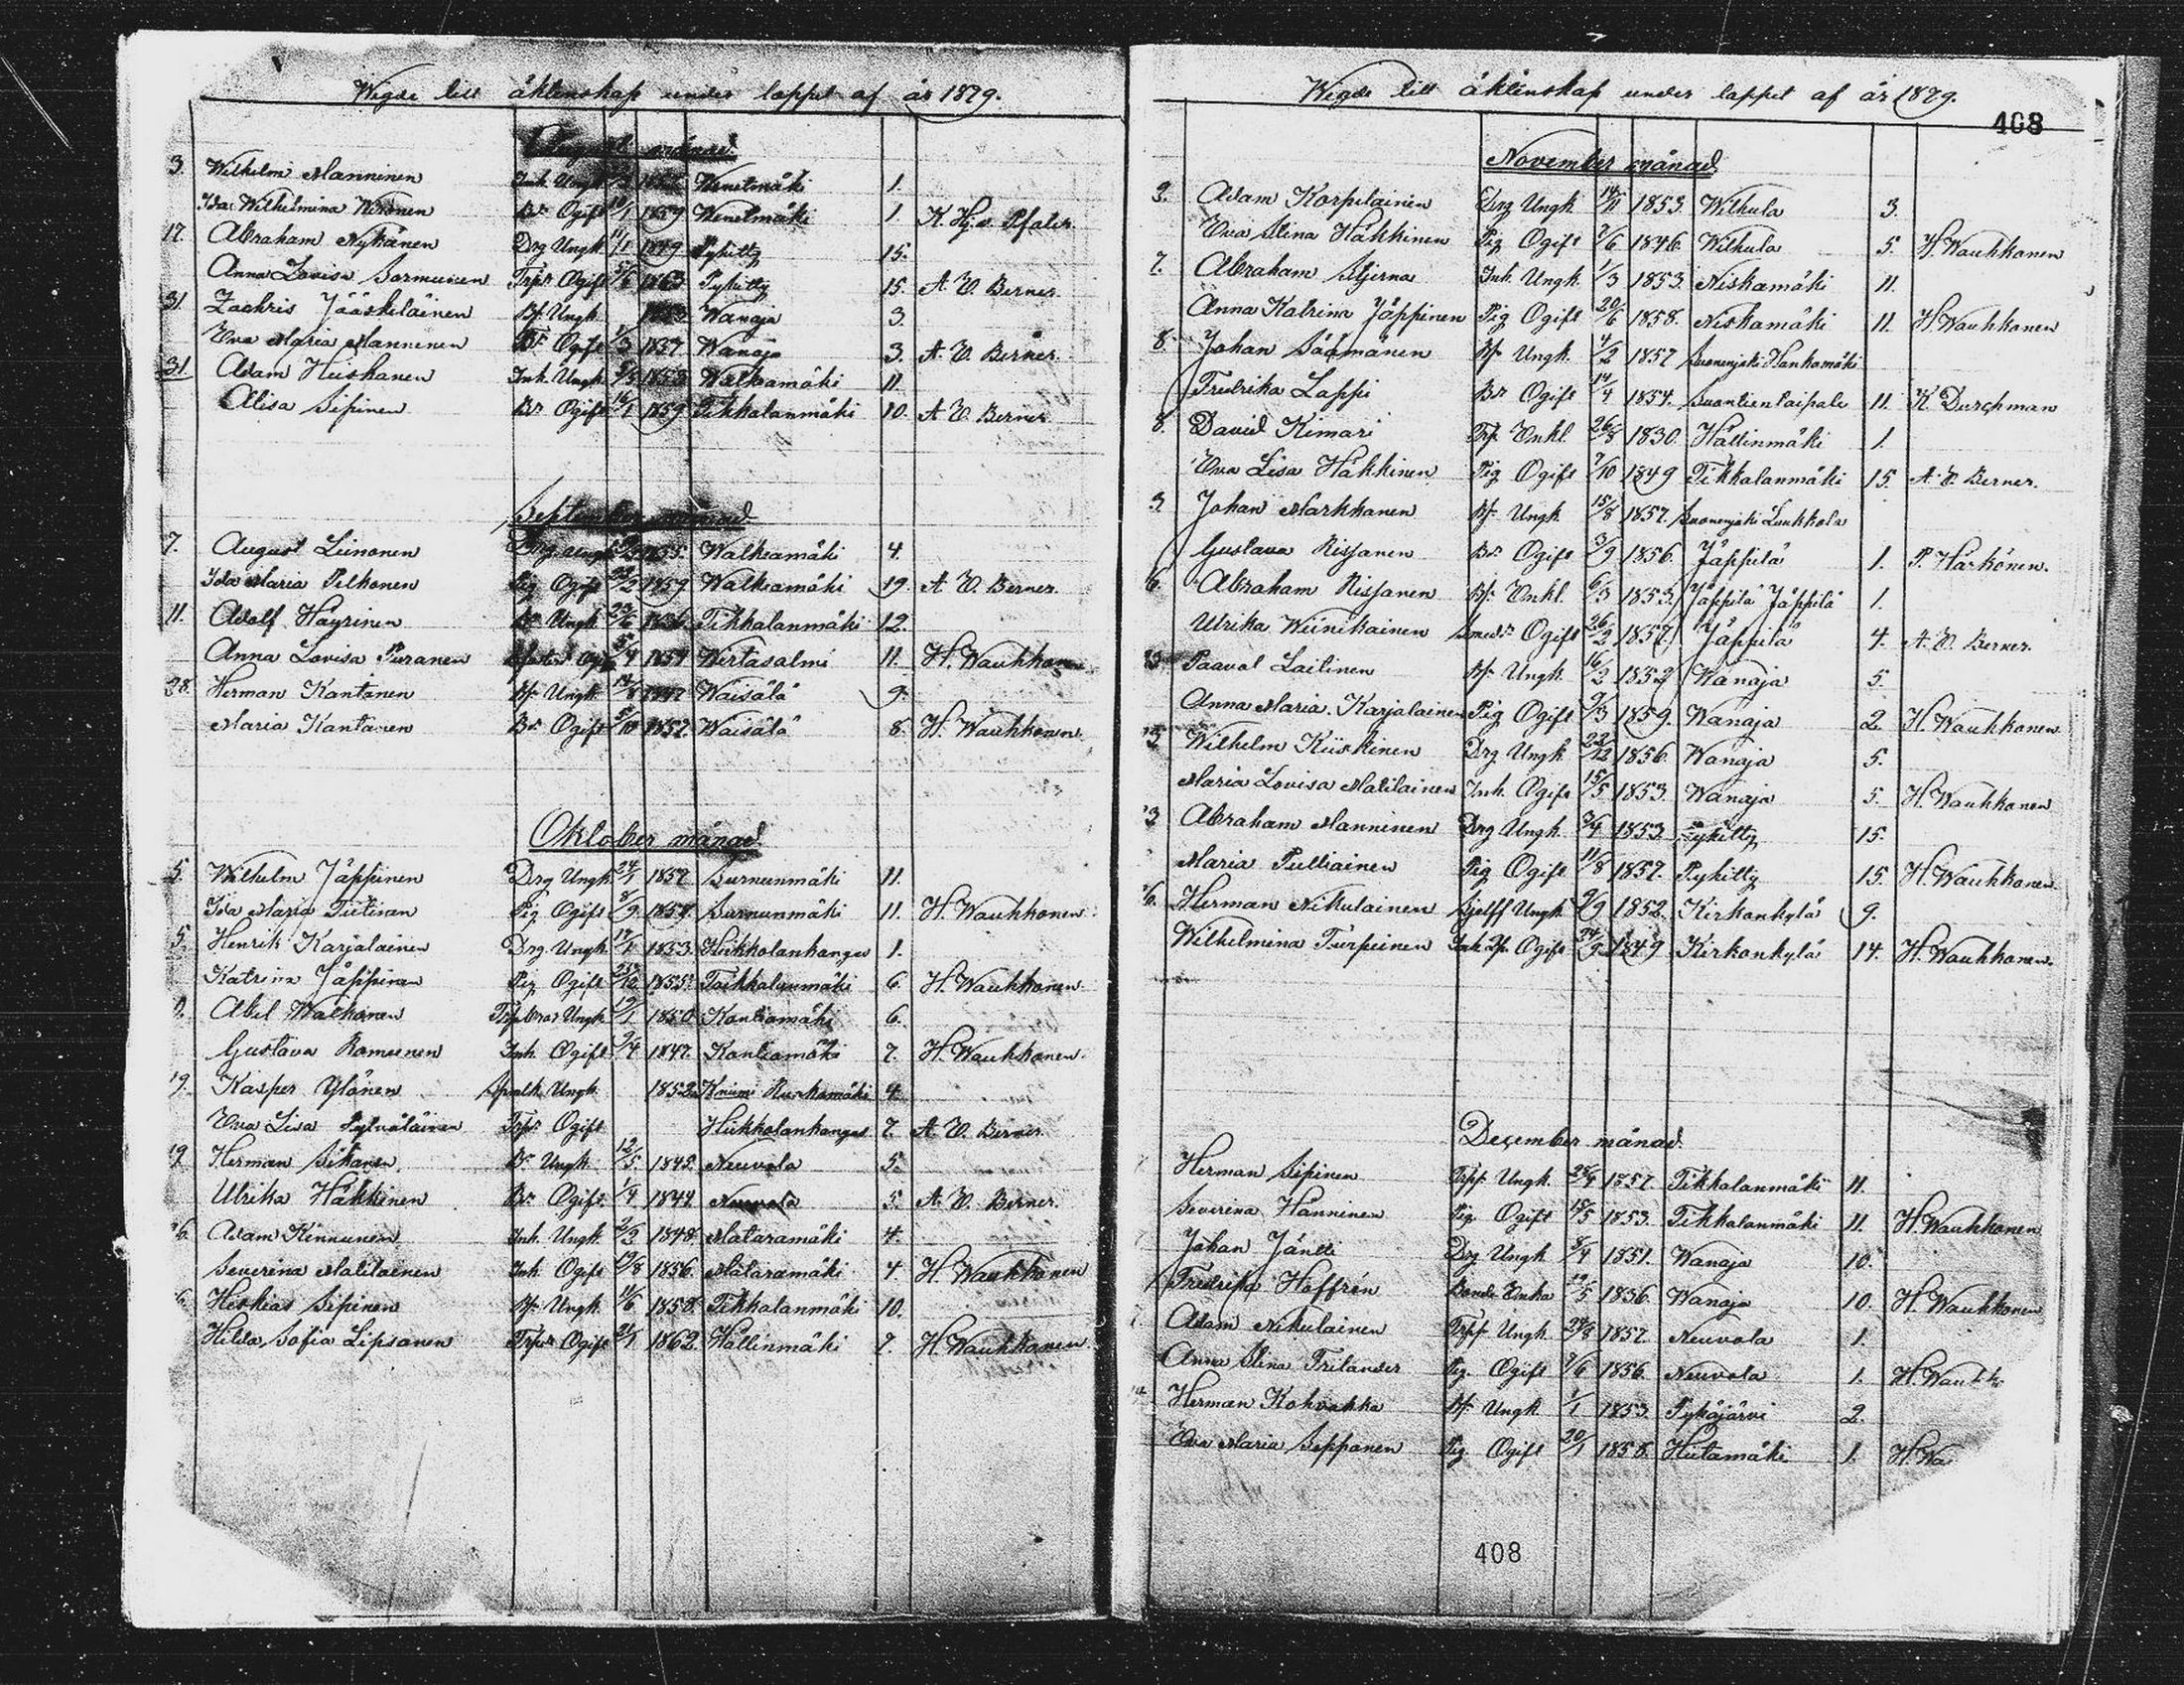 Wigde till äktenskap under loppet af år 1879.
August månad.
3. Wilhelm Manninen Inh. Ungk. Wenetmäki 1.
Ida Wilhelmina Wironen Bdr Ogift 10/1 1859 Wenetmäki 1. K. Hj. v. Pfaler.
17. Abraham Nykänen Drg Ungk 11/1 1849 Pykitty 15.
Anna Lovisa Sormunen Trpdr Ogift 1863 Pykitty 15. A. W. Berner.
31. Zachris Jääskeläinen Bf. Ungk Wanaja 3.
Eva Maria Manninen Bdr Ogift 1/3 1837. Wanaja 3. A. W. Berner.
31. Adam Hiiskanen Inh. Ungk. Walkeamäki 11.
Alisa Sipinen Bdr Ogift 16/1 1859 Tikkalanmäki 10. A. W. Berner
September månad
7. August Leinonen Drg Ungk Walkeamäki 4.
Ida Maria Pelkonen Pig Ogift 1859 Walkeamäki 19. A. W. Berner.
11. Adolf Häyrinen Bf Ungk 23/6 Tikkalanmäki 12.
Anna Lovisa Puranen Ogift 5/4 1854 Wirtasalmi 11. H. Wauhkonen
28. Herman Kantanen Bf. Ungk Waisälä 9.
Maria Kantanen Bdr Ogift 5/10 1852. Waisälä 8. H. Wauhkonen.
Oktober månad
5. Wilhelm Jäppinen Drg Ungk. 24/1 1857 Surnunmäki 11.
Ida Maria Tiitinan Pig Ogift 8/9 1857. Surnunmäki 11. H. Wauhkonen.
5. Henrik Karjalainen Drg. Ungk 1853. Hiikkolankangas 1.
Katrina Jäppinen Pig Ogift 1855. Taikkalanmäki 6. H. Wauhkonen
Abel Walkonen Ungk 19/1 1850. Kantiamäki 6.
Gustava Romunen Inh. Ogift 9/4 1847. Kantiamäki 7. H. Wauhkonen.
19. Kasper Ylönen Ungk. 1852. 4.
Eva Lisa Sylväläinen Trpdr Ogift Hiikkolankangas 7. A. W. Berner.
19 Herman Sikanen. Bf Ungk. 12/5 1845. Neuvola 5.
Ulrika Häkkinen Bdr Ogift. 1/4 1844. Neuvola 5. A. W. Berner.
26. Adam Kinnunen Inh. Ungk. 2/2 1848. Mataramäki 4.
Severina Matilainen Inh. Ogift 19/8 1856. Mataramäki 4. H. Wauhkonen
Heskias Sipinen Bf. Ungk. 11/6 1858. Tikkalanmäki 10.
Hilda Sofia Lipsanen Trpdr Ogift 21/1 1862. Hällinmäki 7. H. Wauhkonen.
Wigde till äktenskap under loppet af år 1879.
408
November månad
2. Adam Korpilainen Drg Ungk 14/11 1853. Wilhula 3.
Eva Stina Häkkinen Pig Ogift 2/6 1846. Wilhula 5. H. Wauhkonen
7. Abraham Stjerna Inh. Ungk. 1/3 1853. Niskamäki 11.
Anna Katrina Jäppinen Pig Ogift 20/6 1858. Niskamäki 11. H. Wauhkonen
8. Johan Säämänen Bf. Ungk. 4/2 1857 Suonenjoki Hankamäki
Fredrika Lappi Bdr Ogift 14/4 1854. Suontientaipale 11. K. Durchman
8. David Kimari Trp. Enkl. 26/8 1830. Hällinmäki 1.
Eva Lisa Häkkinen Pig Ogift 7/10 1849 Tikkalanmäki 15. A. W. Berner.
9. Johan Markkanen Bf. Ungk 15/8 1857. Suonenjoki Luukkola
Gustava Rissanen Bdr Ogift 3/9 1856. Jäppilä 1. P. Härkönen.
Abraham Rissanen Bf. Enkl. 6/3 1853. Jäppilä Jäppilä 1.
Ulrika Wiinikainen Smedsdr Ogift 26/2 1857. Jäppilä 4. A. W. Berner.
Paaval Laitinen Bf. Ungk. 16/2 1852 Wanaja 5.
Anna Maria Karjalainen Pig Ogift 9/3 1859. Wanaja 2. H. Wauhkonen.
Wilhelm Kiiskinen Drg Ungk 22/12 1856. Wanaja 5.
Maria Lovisa Matilainen Inh. Ogift 15/5 1853. Wanaja 5. H. Wauhkonen
Abraham Manninen Drg Ungk. 3/4 1853 Pykitty 15.
Maria Pulliainen Pig Ogift 11/8 1857. Pykitty 15. H. Wauhkonen.
Herman Nikulainen Sjelff Ungk 9/9 1852. Kirkonkylä 9.
Wilhelmina Turpeinen Ogift 24/9 1849 Kirkonkylä 14. H. Wauhkonen.
December månad.
Herman Sipinen Trpf Ungk. 1857. Tikkalanmäki 11.
Severina Hänninen Pig. Ogift 15/5 1853. Tikkalanmäki 11. H. Wauhkonen
Johan Jäntti Drg Ungk 8/4 1851. Wanaja 10.
Fredrika Hoffrén Bonde Enka 1836. Wanaja 10. H. Wauhkonen
Adam Nikulainen Trpf Ungk 1857. Neuvola 1.
Anna Stina Frilander Pig. Ogift 7/6 1856. Neuvola 1. H. Wauhk
Herman Kohvakka Bf. Ungk 1/1 1853. Pyhäjärvi 2.
Eva Maria Seppänen Pig. Ogift 20/1 1858. Hiitamäki 1. H. Wa
408